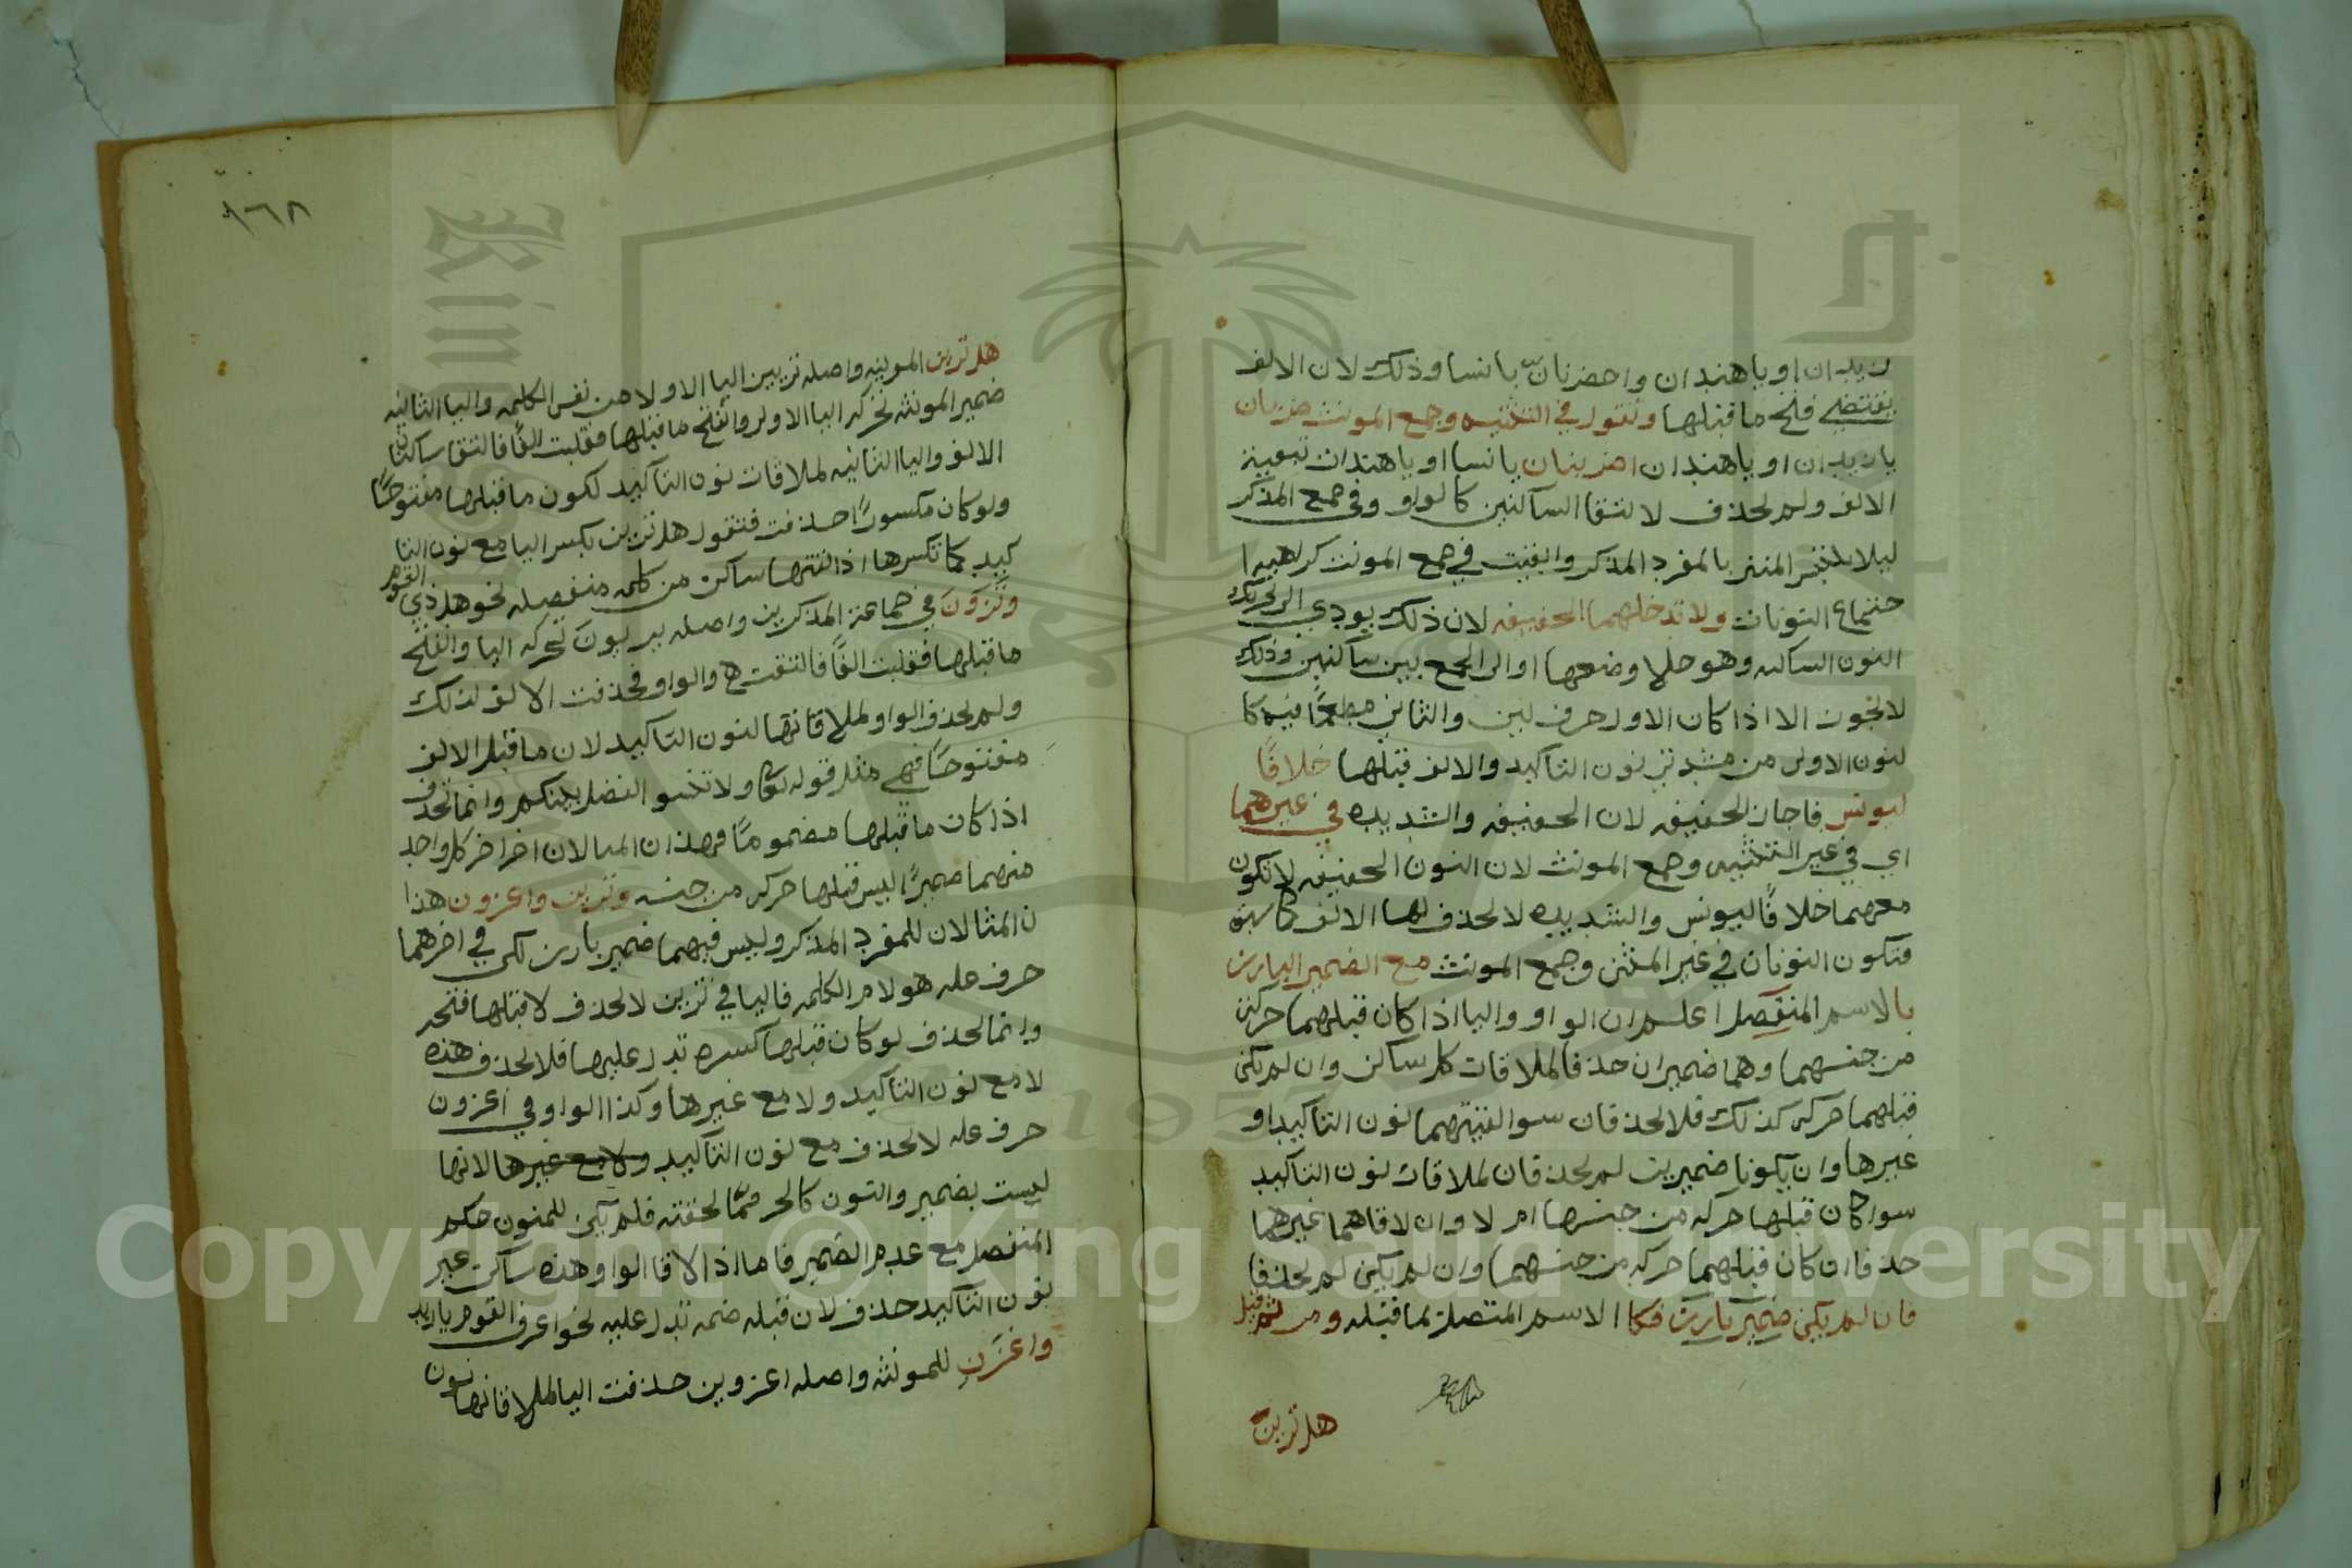 زيدان او يا هندان واحضربانّ يا نسا وذلك لان الالف
يقتضي فتح ما قبلها وتقول في التثنيه وجمع المونث اضربان
يا زيدان او يا هندان اضربنان يا نسا او يا هندات تبعية
الالف ولم تحذف لالتقا الساكنين كالواو وفي جمع المذكر
ليلا يلتبس المثنى بالمفرد المذكر وابقيت في جمع المونث كراهية ا
جتماع النونات ولا تدخلهما الخفيفه لان ذلك يودي الى تحريك
النون الساكنه وهو خلاف وضعها او الى الجمع بين ساكنين وذلك
لا يجوز الا اذا كان الاول حرف لين والثاني مدغمًا فيه كا
لنون الاولى من مشددتي نون التاكيد والالف قبلها خلافًا
ليونس فاجاز الخفيفه لان الخفيفه والشديده في غيرهما
اي في غير التثنيه وجمع المونث لان النون الخفيفه لا تكون
معهما خلافًا ليونس والشديده لا تحذف لها الالف كما سبق
فتكون النونان في غير المثنى وجمع المونث مع الضمير البارز
بالاسم المنفصل اعلم ان الواو واليا اذا كان قبلهما حركة
من جنسهما وهما ضميران حذفا لملاقات كل ساكن وان لم يكن
قبلهما حركه كذلك فلا تحذفان سوا لقيتهما نون التاكيد او
غيرها وان يكونا ضميرين لم تحذفان لملاقات نون التاكيد
سوا كان قبلها حركه من جنسها ام لا وان لاقاهما غيرهما
حذفا ان كان قبلهما حركه من جنسهما وان لم يكن لم تحذفا
فان لم يكن ضمير بارز فكا الاسم المتصل بما قبله ومن ثم قيل
هل ترين
١٦٨
هل ترين المونثه واصله تريين اليا الاولا من نفس الكلمه واليا الثانيه
ضمير المونثه تحركه اليا الاولى وانفتح ما قبلها فقلبت الفًا فالتقا ساكنان
الالف واليا الثانيه لملاقات نون التاكيد لكون ما قبلها مفتوحًا
ولو كان مكسورًا حذفت فتقول هل ترين بكسر اليا مع نون التا
كيد كما تكسرها اذا لقتها ساكن من كلمه منفصله نحو هل تري القوم
وتَرَوُنَّ في جماعة المذكرين واصله يريون تحركه اليا وانفتح
ما قبلها فقلبت الفًا فالتقت هي والواو فحذفت الالف لذلك
ولم تحذف الواو لملاقاتها لنون التاكيد لان ما قبل الالف
مفتوحًا فهي مثل قوله تعالى ولا تنسو الفضل بينكم وانما تحذف
اذا كان ما قبلها مضمومًا فهذان المثالان اخر اخر كل واحد
منهما ضميرًا ليس قبلها حركه من جنسه وترين واغزون هذا
ن المثالان للمفرد المذكر وليس فيهما ضمير بارز لكن في اخرهما
حرف عله هو لام الكلمه فاليا في ترين لا تحذف لا قبلها فتحه
وانما تحذف لو كان قبلها كسره تدل عليها فلا تحذف هذه
لا مع نون التاكيد ولا مع غيرها وكذا الواو في اغزون
حرف عله لا تحذف مع نون التاكيد ولا مع غيرها لانها
ليست بضمير والنون كالحرف مما لحقته فلم يكن للمنون حكم
المنفصل مع عدم الضمير فاما اذا لاقا الواو هذه ساكن غير
نون التاكيد حذف لان قبله ضمه تدل عليه نحو اغز القوم يا زيد
واغزن للمونثه واصله اغزوين حذفت اليا لملاقاتها نون